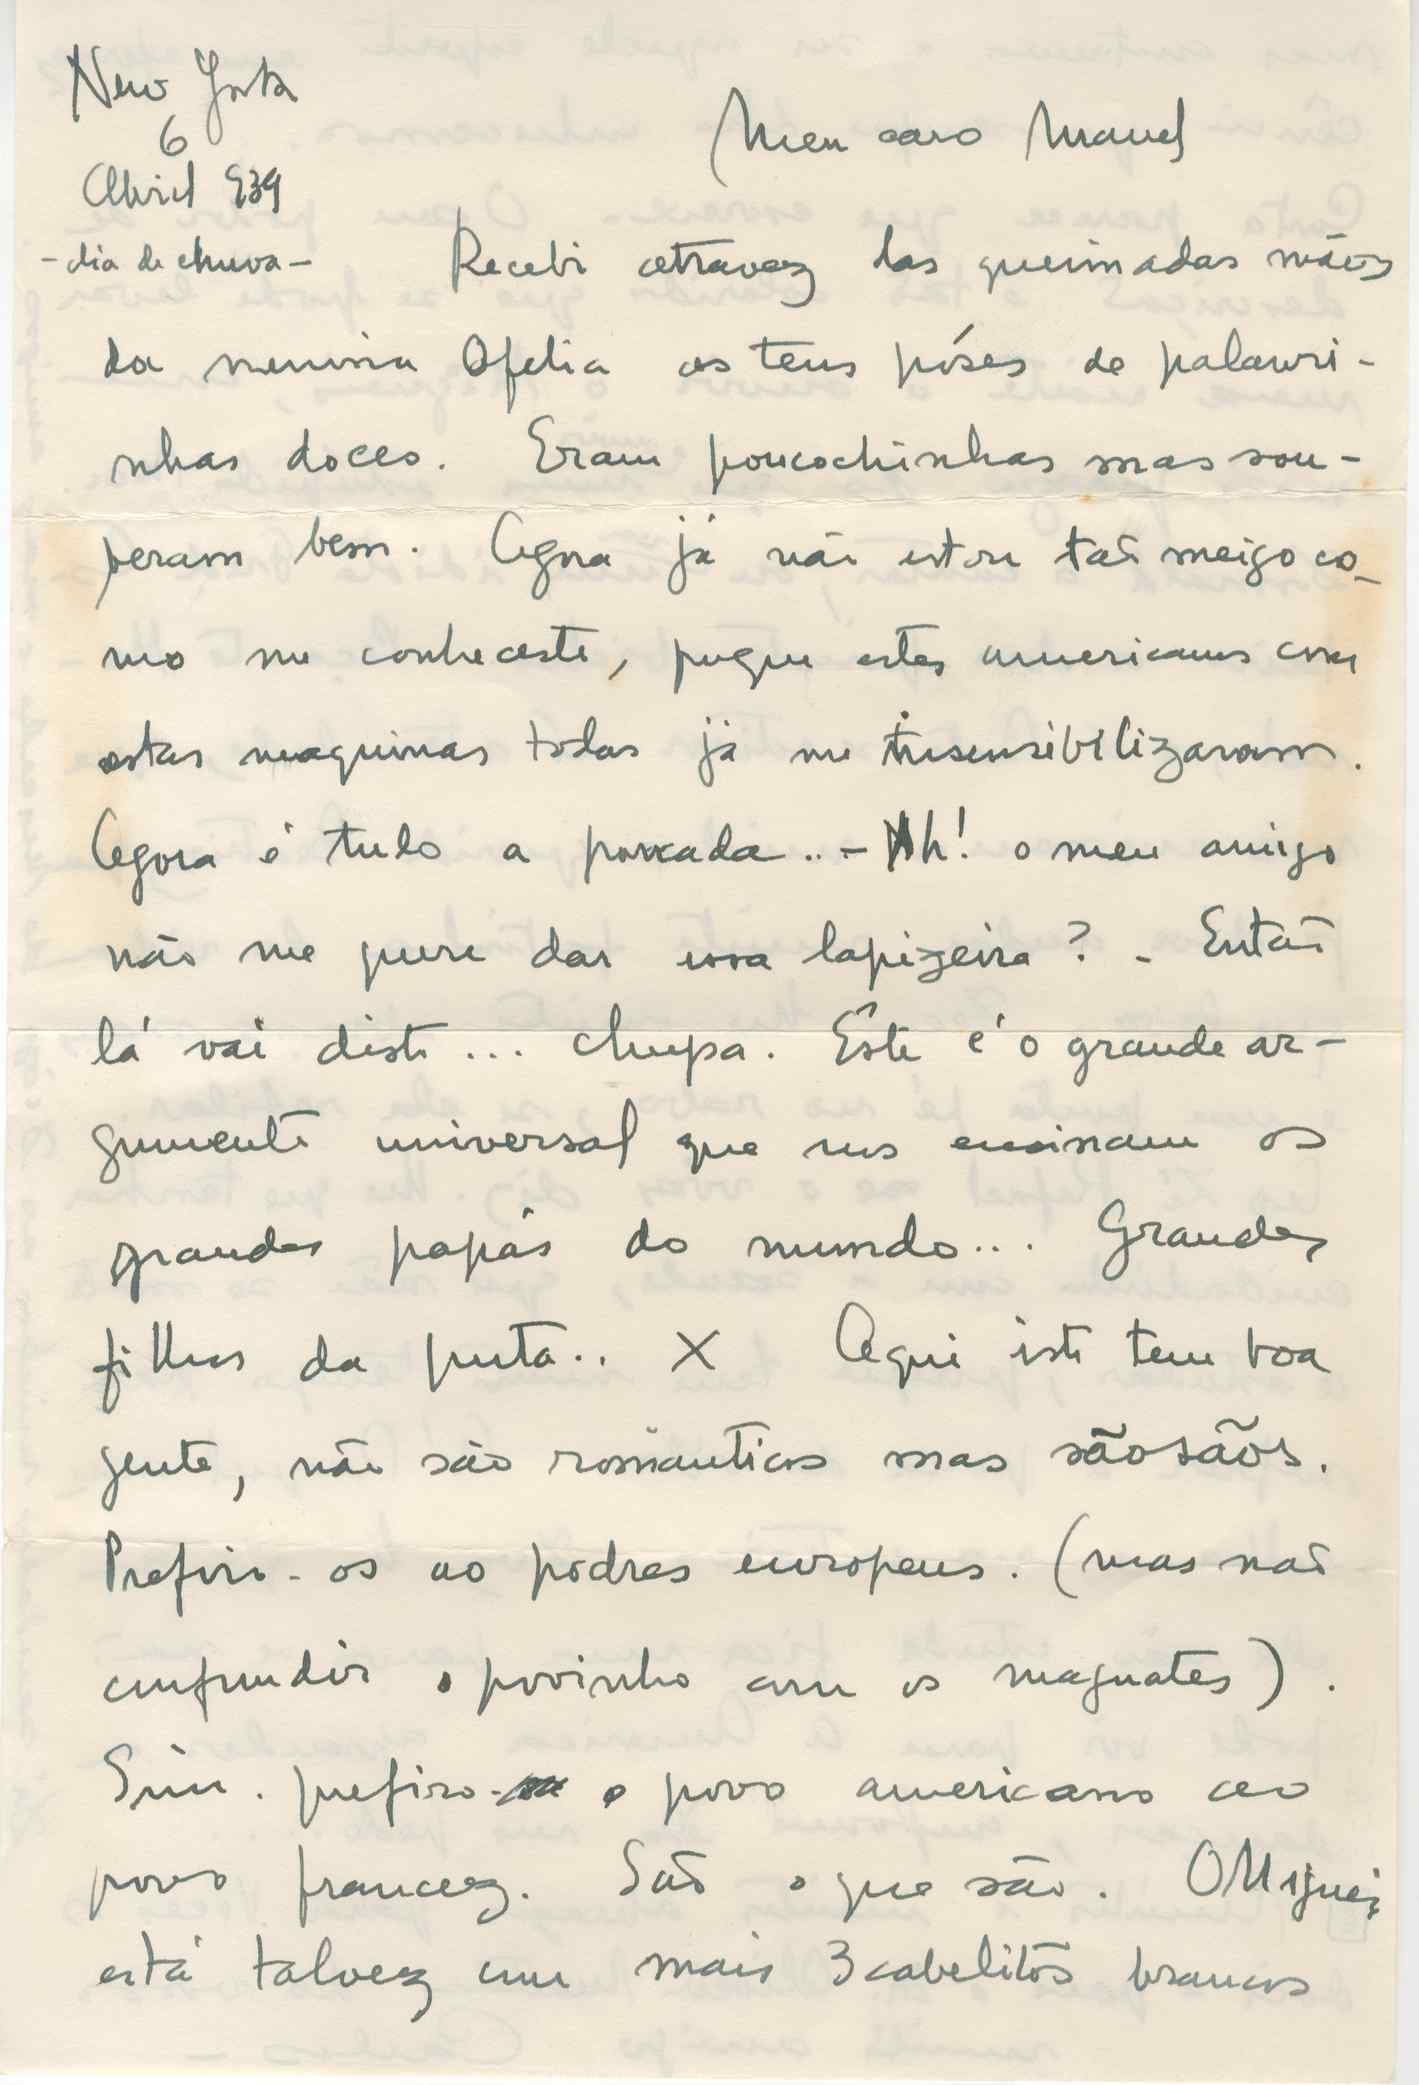 New York
6
Abril 939
- dia de chuva -
Meu caro Manuel
Recebi atravez das queimadas mãos
da menina Ofelia os teus póses de palavri-
nhas doces. Eram poucochinhas mas sou-
peram bem. Agora já não estou taõ meigo co-
mo me conheceste, puque estes americanos com
estas maquinas todas já me insensibilizaram.
Agora é tudo a porrada.. - Ah! o meu amigo
não me quere dar essa lapizeira? - Entaõ
lá vai disto... chupa. Êste é o grande ar-
gumento universal que nos ensinam os
grandes papás do mundo... Grandes
filhos da puta.. X Aqui isto tem boa
gente, não são romanticos mas são sãos.
Prefiro-os ao podres europeus. (mas naõ
confundir o povinho com os magnates).
Sim. prefiro o povo americano ao
povo francez. Saõ o que são. O Miguéi
está talvez com mais 3 cabelitos brancos